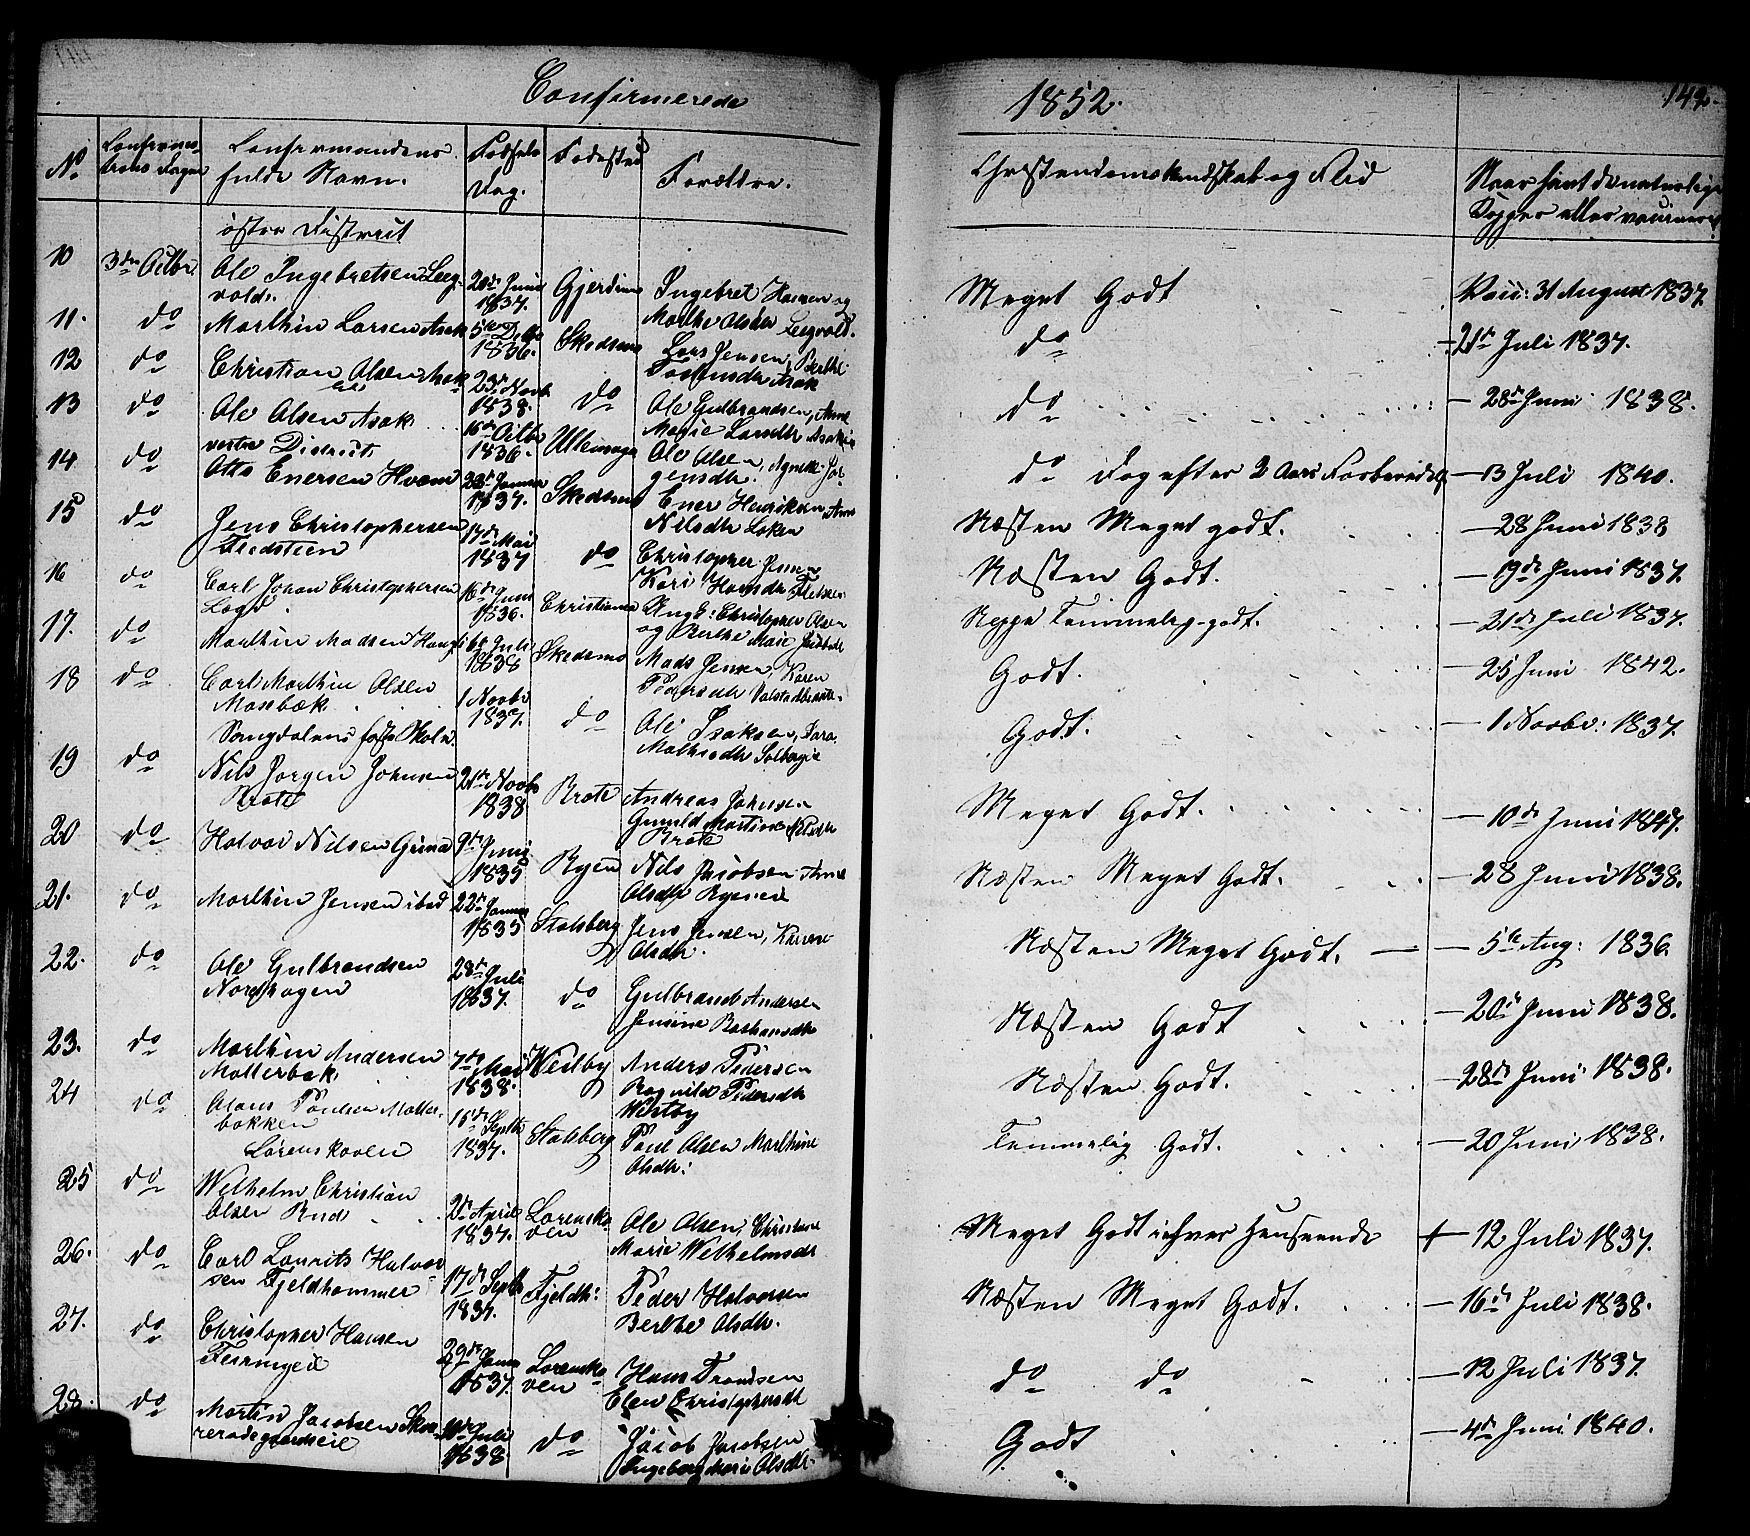 Confirmerede
1852.
142.
No
Confirma-
tions Dagen
Confirmandens
fulde Navn.
Fødsels
Dag.
Fødested
Forældre.
Christendomskundskab og Flid
Naar havt de naturlige
Kopper eller vaccineret
østre District
10 3die Octbr. Ole Ingebretsen Leeg-
vold. 20de Juni 1837. Gjerdrum Ingebret Hansen og
Marthe Olsdr Leegvold. Meget Godt Vacc: 31 August 1837.
11. do Marthin Larsen Asak 1836. Skedsmo Lars Jensen, Berthe
Asak do - 21de Juli 1837.
12 do Christian Olsen Asak 23de Novb. 1838. do Ole Gulbrandsen, Anne
Marie Larsdtr Asak do - 28de Juni 1838.
13 do Ole Olsen Asak 16de Octbr 1836. Ullensager Ole Olsen, Agnethe
do Dog efter 2 Aars Forberedelse - 13 Juli 1840.
vestre District
14 do Otto Enersen Hvam 28de Januar 1837. Skedsmo Ener Henriksen, Anne
Nilsdtr Leken Næsten Meget godt. - 28 Juni 1838
15 do Jens Christophersen
17de Mai 1837 do Christopher Jensen
Kari Hansdtr Næsten Godt. - 19de Juni 1837.
16 do Carl Johan Christophersen
16de Juni 1836. Christiania Ungk: Christopher Olsen
og Berthe Marie Neppe Temmelig godt. - 21de Juli 1837.
17. do Marthin Madsen 6te Juli 1838 Skedsmo Mads Jensen, Karen
Pedersdtr Godt. - 25 Juni 1842.
18 do Carl Marthin Olsen
Mosebæk 1 Novbr 1837. do Ole Isaksen,
Godt. - 1 Novbr: 1837.
Sougdalens faste Skole.
19 do Nils Jørgen Johnsen
Braate 21de Novb. 1838 Braate Andreas Johnsen
Gunild Martine Nilsdtr
Braate Meget Godt. - 10de Juni 1847.
20 do Halvor Nilsen Grina 9de Juni 1835 Ryen Nils Jacobsen Anne
Olsdtr Ryeneie Næsten Meget Godt. - 28 Juni 1838.
21. do Marthin Jensen ibid 22de Januar 1835 Stalsberg Jens Jensen, Karen
Olsdtr. Næsten Meget Godt. - 5te Aug: 1836.
22. do Ole Gulbrandsen
Nordhagen 28de Juli 1837. do Gulbrand Andersen
Jensine Næsten Godt - 20de Juni 1838.
23. do Marthin Andersen
Mollerbek 7de Mai 1838. Westby Anders Pedersen
Ragnild Pedersdtr
Westby Næsten Godt. - 28de Juni 1838.
24 do Olaus Poulsen Moller-
bækken 16de Septbr 1837. Stalsberg Poul Olsen Marthine
Olsdtr: Temmelig Godt. - 20 Juni 1838.
Lørenskoven
25 do Wilhelm Christian
Olsen Rud 2den April 1837. Lorensko-
ven Ole Olsen, Christiane
Marie Wilhelmsdtr Meget Godt i hver Henseende - 12 Juli 1837.
26. do Carl Laurits Halvor-
sen Fjeldhammer 17de Septb. 1837. Fjeldh: Peder Halvorsen
Berthe Olsdtr. Næsten Meget Godt. - 16de Juli 1838.
27. do Christopher Hansen
29de Janu 1837. Lorensko-
ven Hans Trondsen
Elen Christophersdtr do do - 12 Juli 1837.
28. do Martin Jacobsen
Juli 1838 do Jacob Jacobsen
Ingeborg Marie Olsdtr. Godt - 4de Juni 1840.